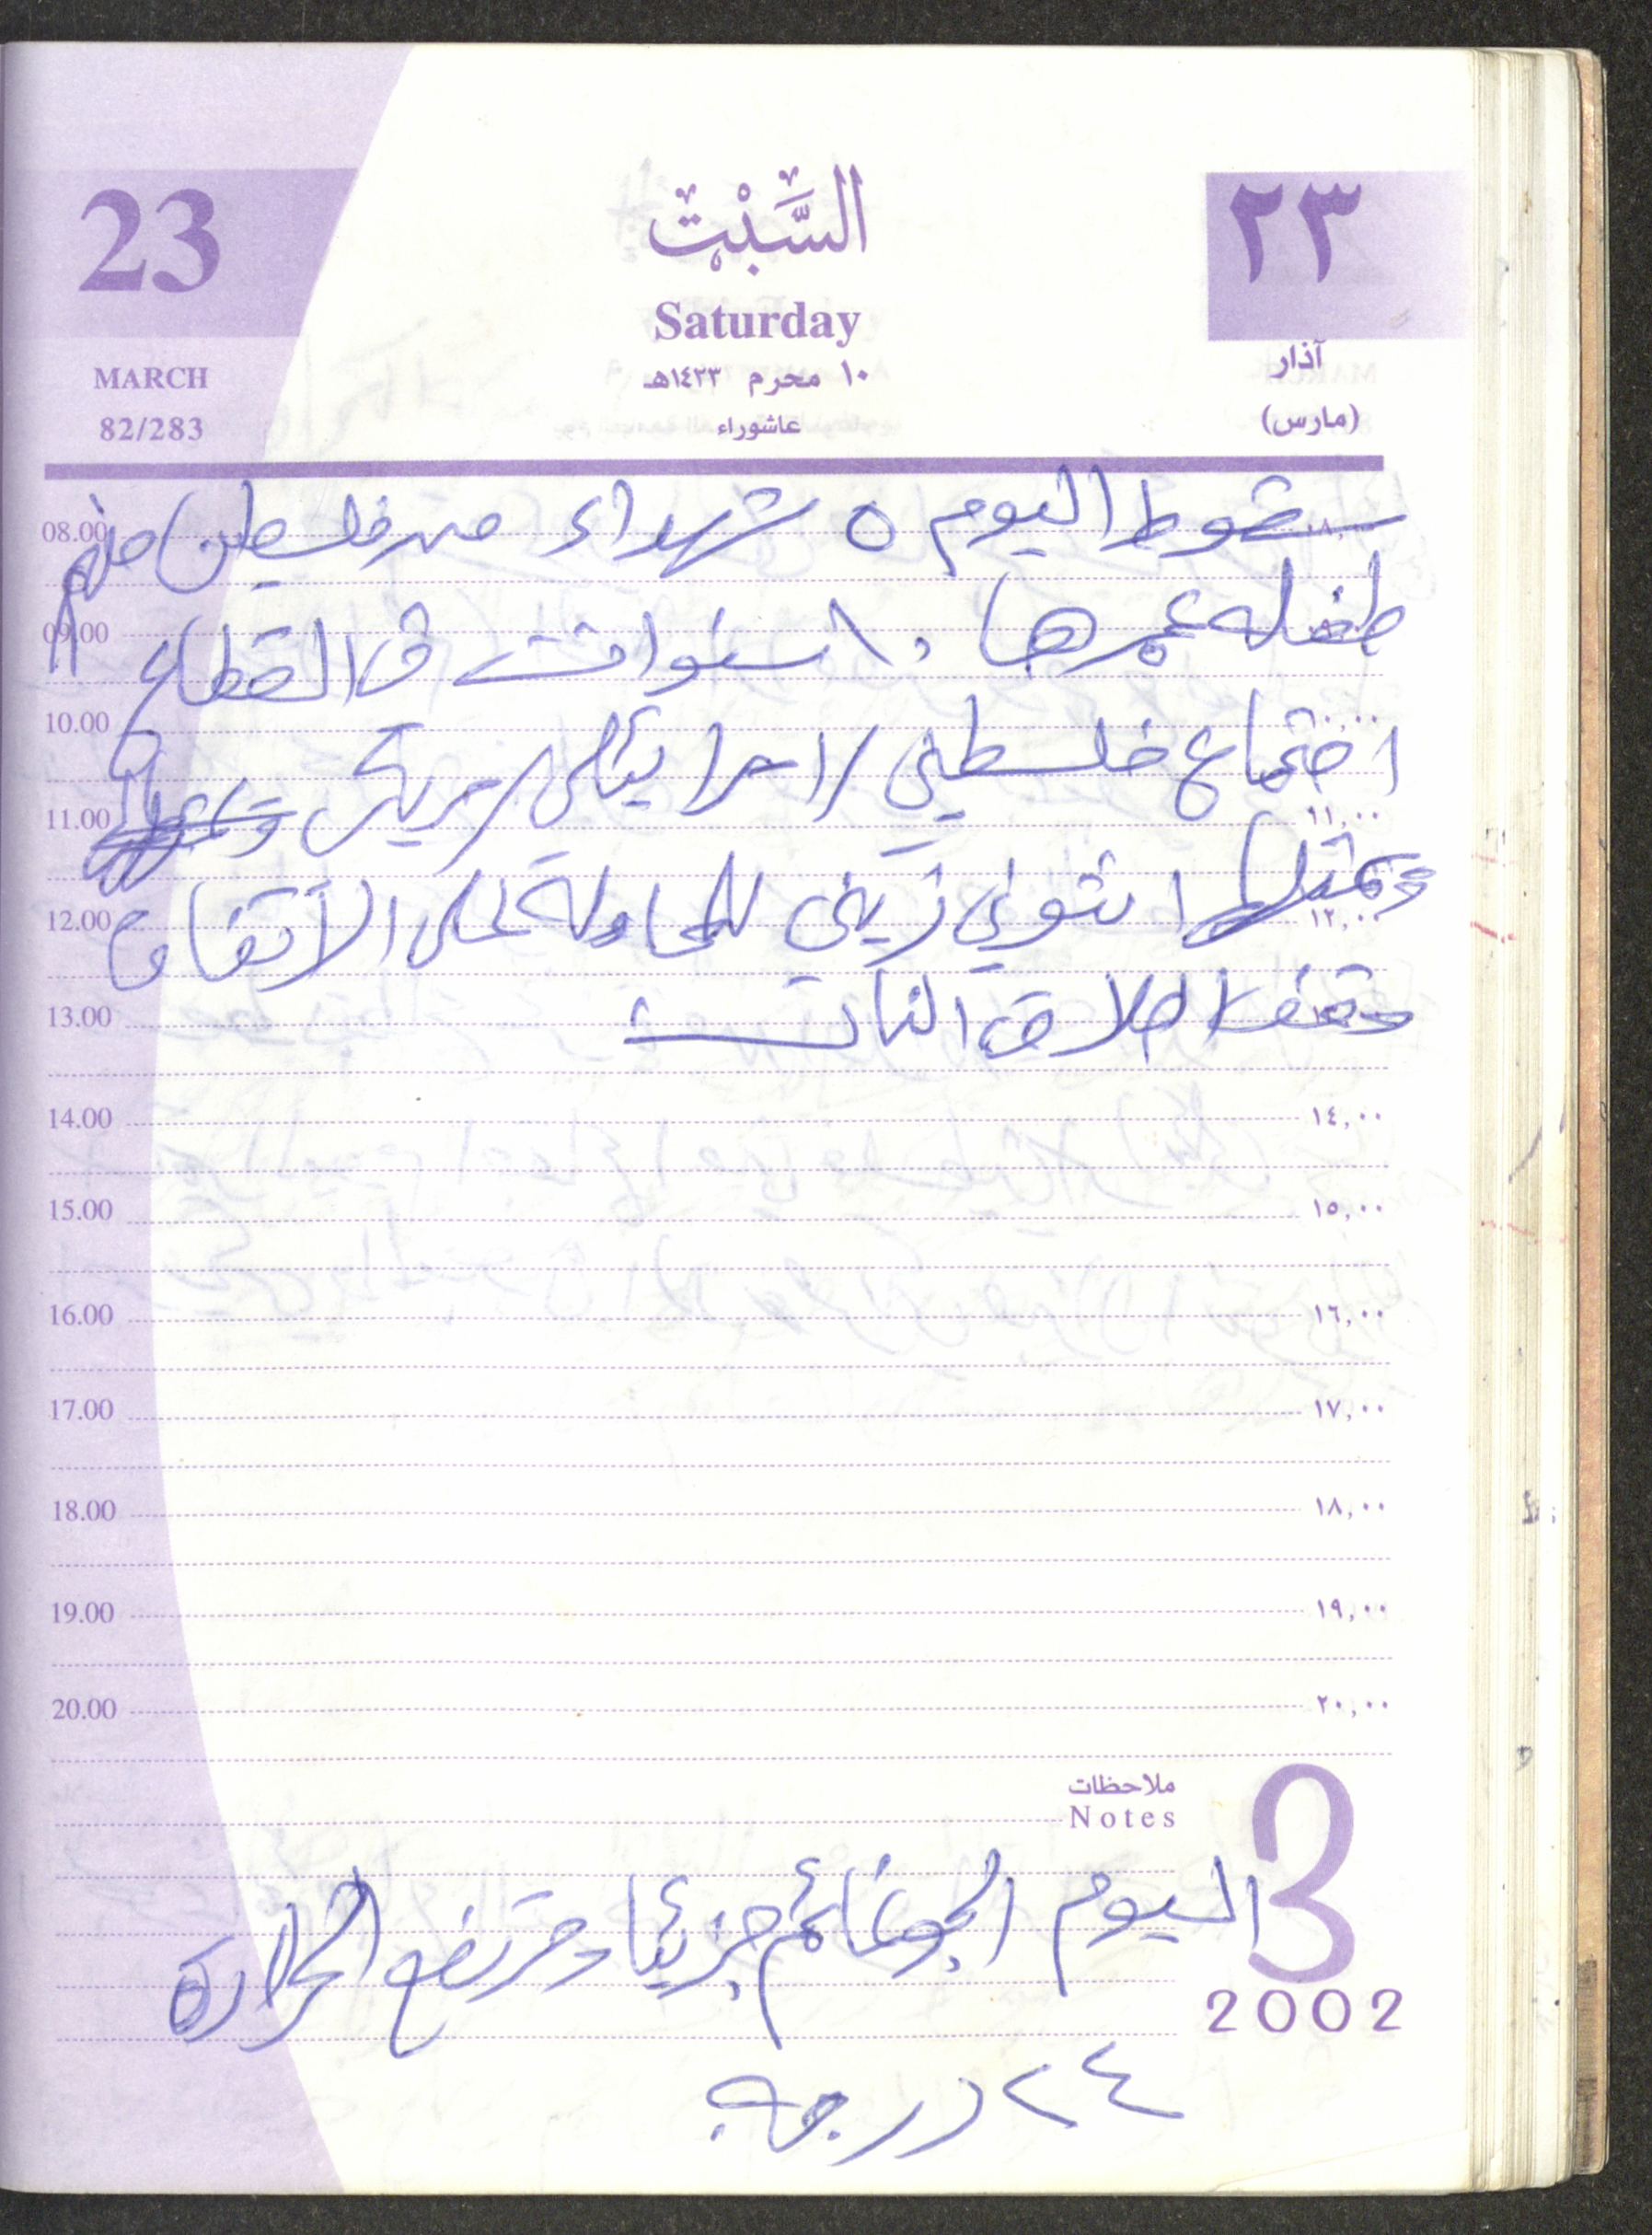 23
السَّبْت
٢٣
Saturday
MARCH
١٠ محرم ١٤٢٣هـ
آذار
82/283
عاشوراء
(مارس)
سقوط اليوم ٥ شهداء من فلسطين منهم
08.00
طفله عمرها ١٠ سنوات في القطاع
09.00
اجتماع فلسطيني اسرائيلي امريكي
10.00
11.00 ١١,٠٠
ويمثلها انثوني زيني للمحاولة على الاتفاق
12.00 ١٢,٠٠
وقف اطلاق النار
13.00
14.00 ١٤,٠٠
15.00 ١٥,٠٠
16.00 ١٦,٠٠
17.00 ١٧,٠٠
18.00 ١٨,٠٠
19.00 ١٩,٠٠
20.00 ٢٠,٠٠
ملاحظات
Notes
3
اليوم الجو غائم جزئيا ومرتفع الحرارة
2002
٢٤ درجة